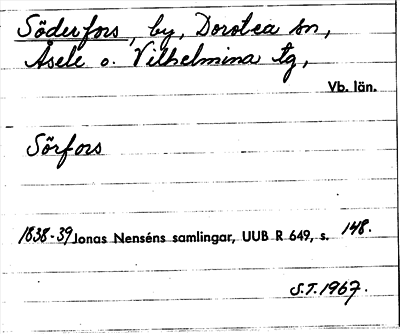 Söderfors, by, Dorotea sn,
Åsele o. Vilhelmina tg,
Vb. län.
Sörfors
1838-39 Jonas Nenséns samlingar, UUB R 649, s. 148.
S.T. 1967.